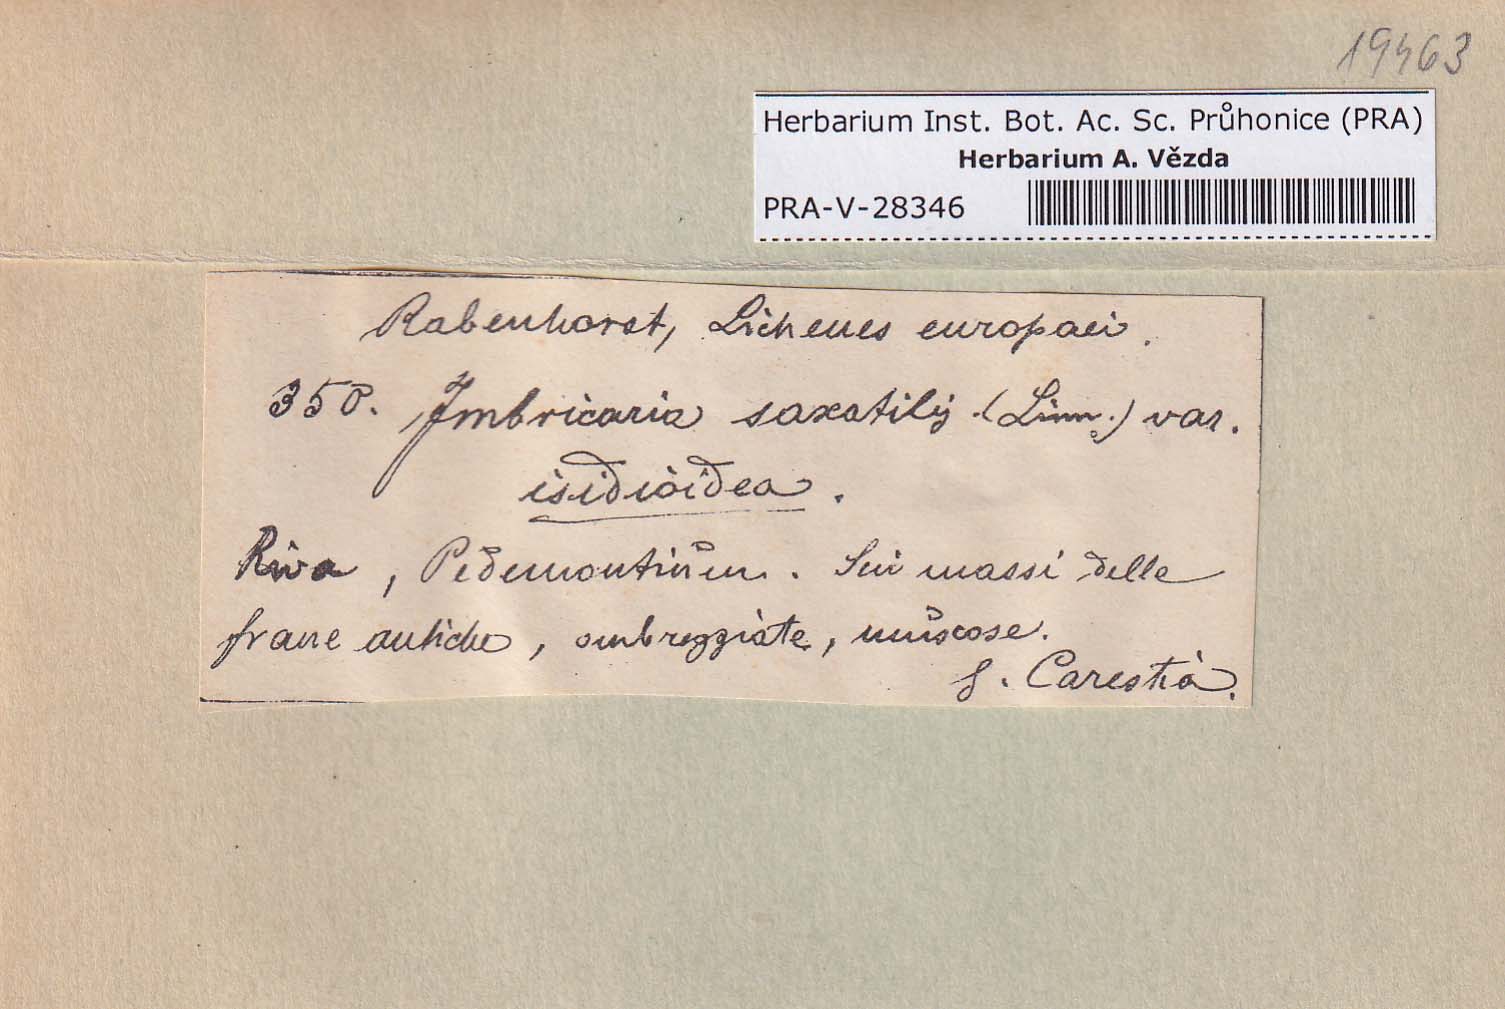 19463
Herbarium Inst. Bot. Ac. Sc. Průhonice (PRA)
Herbarium A. Vězda
PRA-V-28346
Rabenhorst, Lichenes europaei.
350. Imbricaria saxatilis (Linn.) var.
isidioidea.
Riva, Pedemontium. Sui massi delle
frane antiche, ombreggiate, muscose.
Carestia.